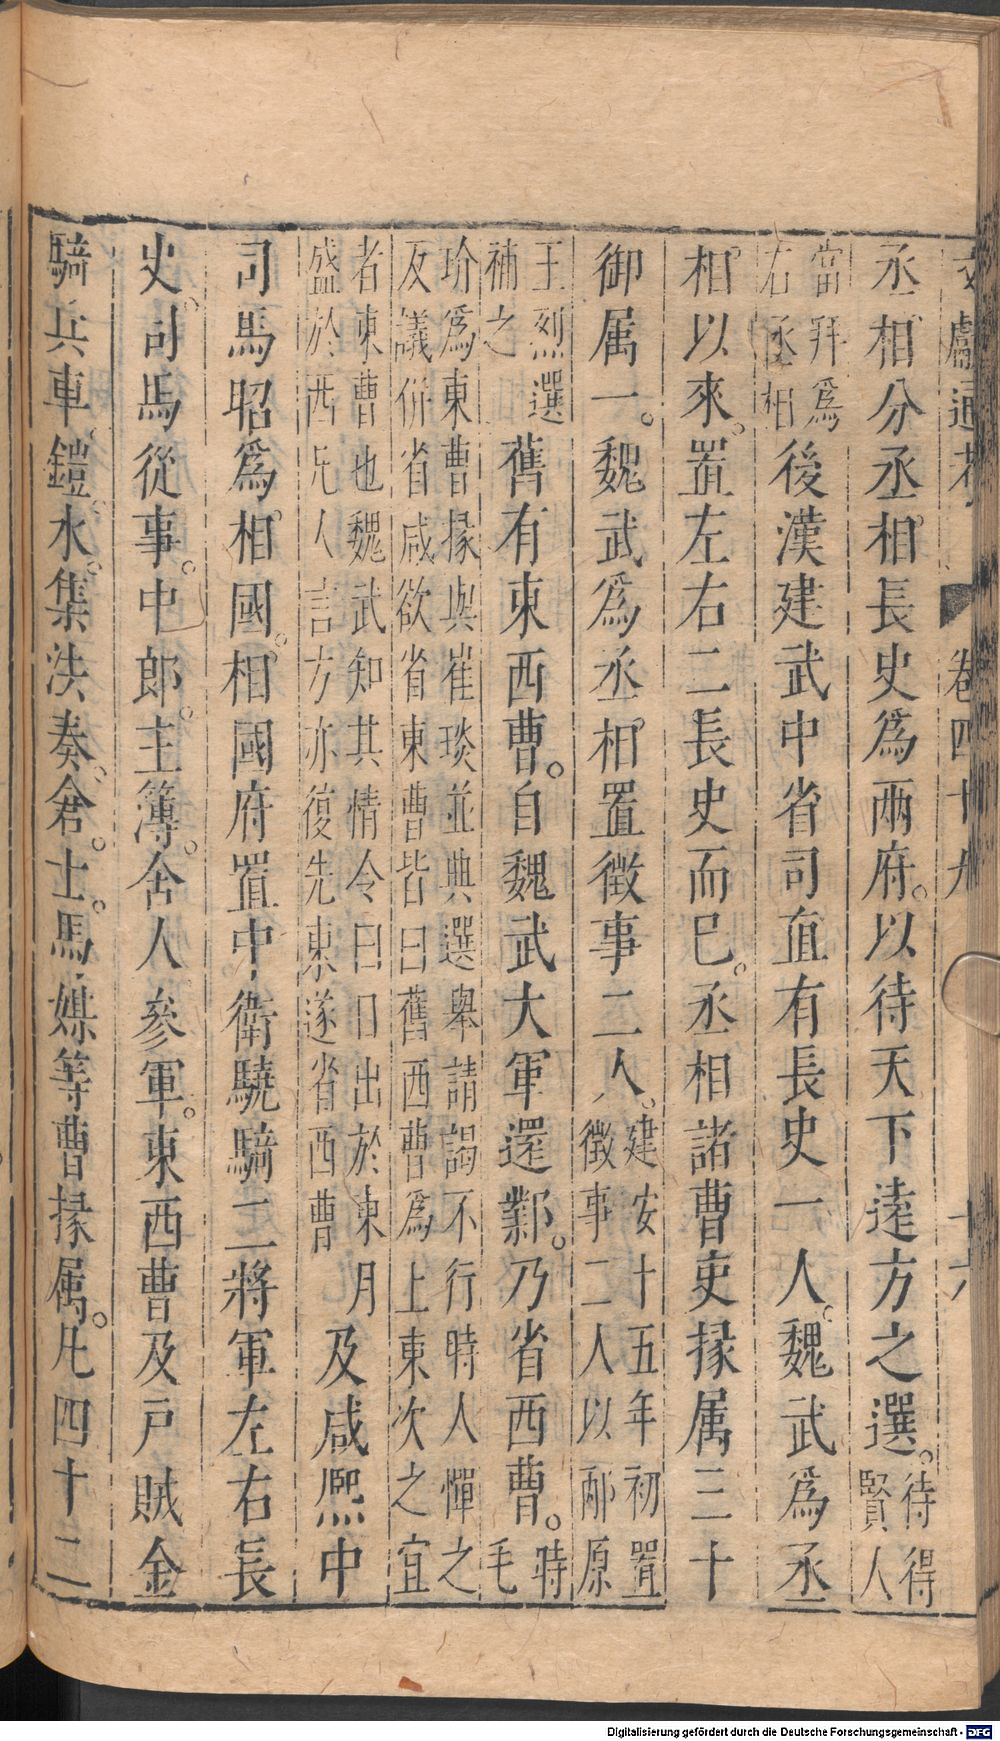 文獻通考 卷四十九 十六
丞相分丞相長史爲兩府以待天下遠方之選待得
賢人
當拜爲
右丞相後漢建武中省司直有長史一人魏武爲丞
相以來置左右二長史而已丞相諸曹吏掾属三十
御属一魏武爲丞相置徵事二人建安十五年初置
徵事二人以邴原
王烈選
補之舊有東西曹自魏武大軍還鄴乃省西曹時
毛
玠爲東曹掾與崔琰並典選舉請謁不行時人憚之
友議併省咸欲省東曹皆曰舊西曹爲上東次之宜
者東曹也魏武知其情令曰日出於東月
盛於西凡人言方亦復先東遂省西曹及咸熙中
司馬昭爲相國相國府置中衛驍騎二將軍左右長
史司馬從事中郎主簿舍人參軍東西曹及戸賊金
騎兵車鎧水集法奏倉士馬媒等曹掾属凡四十二
Digitalisierung gefördert durch die Deutsche Forschungsgemeinschaft - DFG